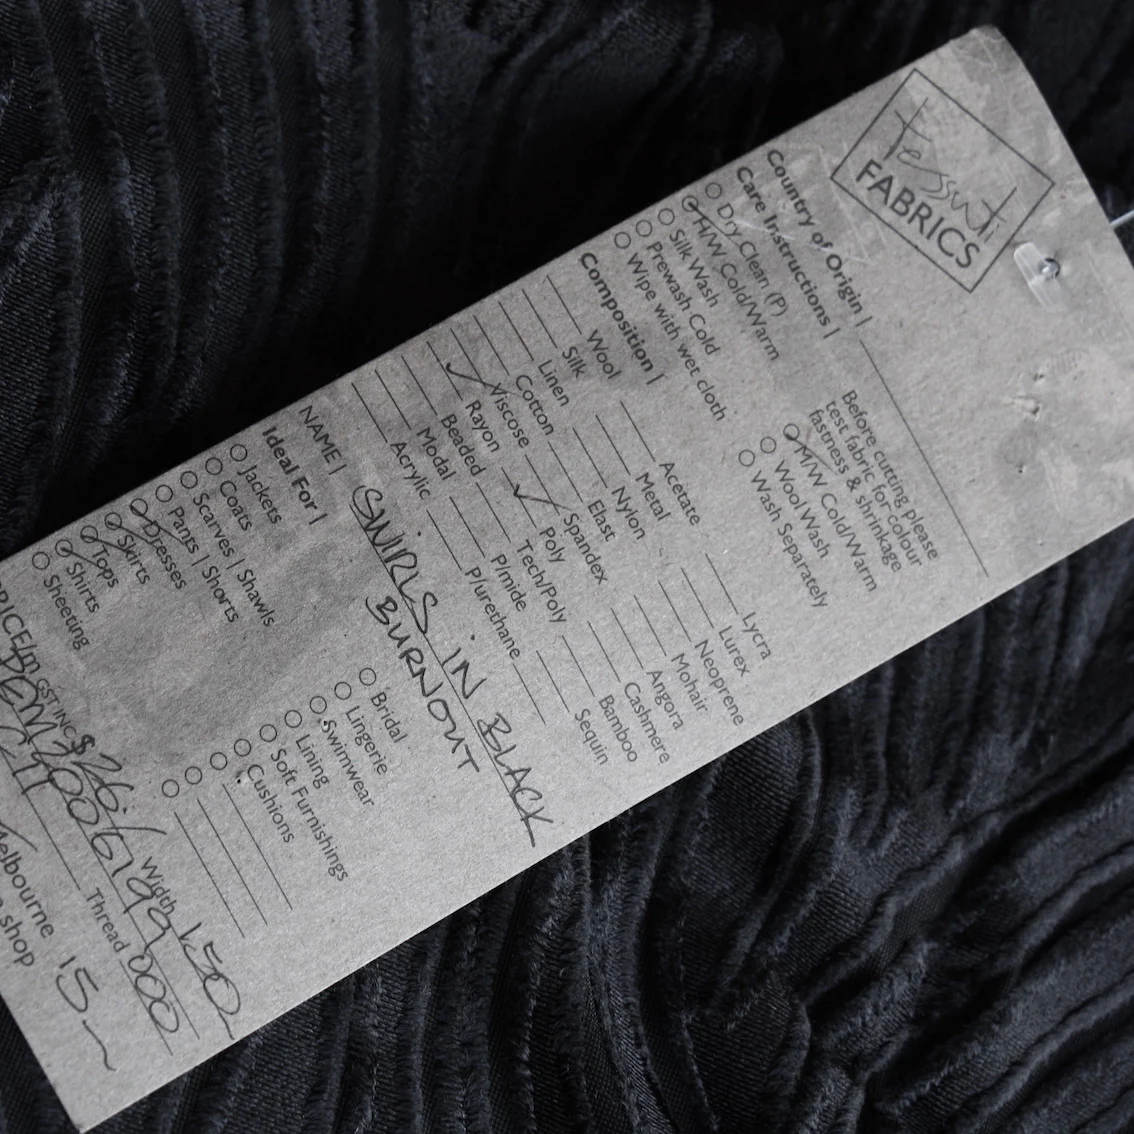 Tessuti
FABRICS
Country of Origin |
Care Instructions |
Dry Clean (P)
H/W Cold/Warm
Silk Wash
Prewash Cold
Wipe with wet cloth
Before cutting please
test fabric for colour
fastness & shrinkage
M/W Cold/Warm
Wool Wash
Wash Separately
Composition |
Wool
Silk
Linen
Cotton
Viscose
Rayon
Beaded
Modal
Acrylic
Acetate
Metal
Nylon
Elast
Spandex
Poly
Tech/Poly
P/mide
P/urethane
Lycra
Lurex
Neoprene
Mohair
Angora
Cashmere
Bamboo
Sequin
NAME | SWIRLS IN BLACK
BURNOUT
Ideal For |
Jackets
Coats
Scarves | Shawls
Pants | Shorts
Dresses
Skirts
Tops
Shirts
Sheeting
Bridal
Lingerie
Swimwear
Lining
Soft Furnishings
Cushions
RICE|m GST INC $26
Width 150
Thread 000
elbourne
shop
15